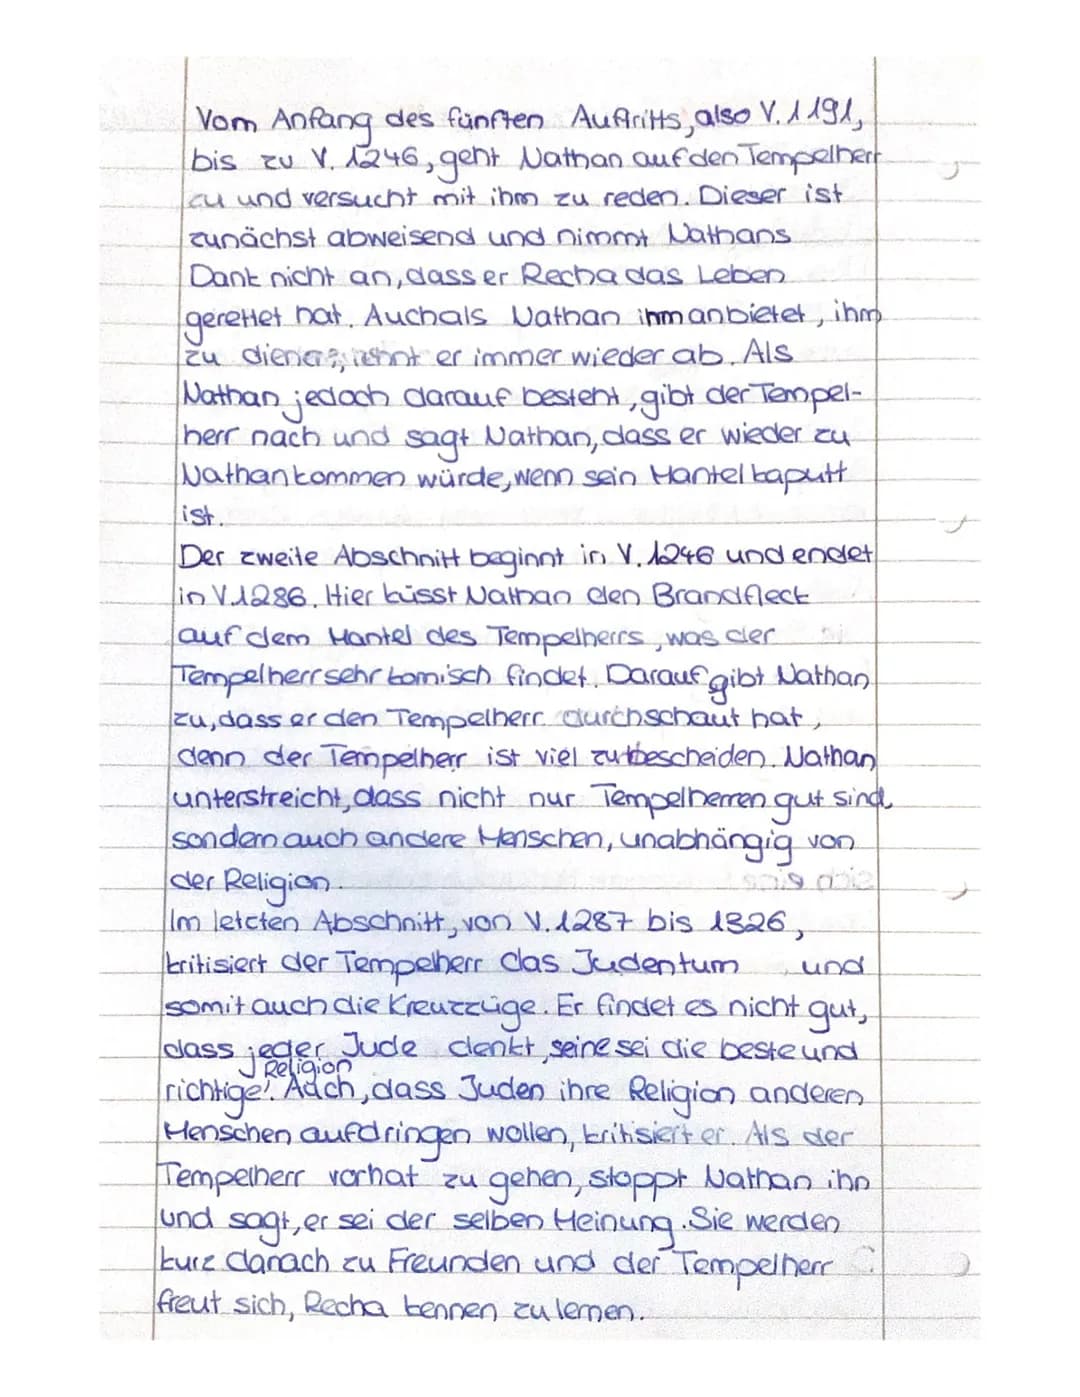 Vom Anfang des fünften Auftritts, also V. 1191,
bis zu V. 1246, geht Nathan auf den Tempelherr
zu und versucht mit ihm zu reden. Dieser ist
zunächst abweisend und nimmt Nathans
Dank nicht an, dass er Recha das Leben
gerettet hat. Auch als Nathan ihm anbietet, ihm
zu dienen, lehnt er immer wieder ab. Als
Nathan jedoch darauf besteht, gibt der Tempel-
herr nach und sagt Nathan, dass er wieder zu
Nathan kommen würde, wenn sein Mantel kaputt
ist.
Der zweite Abschnitt beginnt in V. 1246 und endet
in V.1286. Hier küsst Nathan den Brandfleck
auf dem Mantel des Tempelherrs, was der
Tempelherr sehr komisch findet. Darauf gibt Nathan
zu, dass er den Tempelherr durchschaut hat,
denn der Tempelherr ist viel zu bescheiden. Nathan
unterstreicht, dass nicht nur Tempelherren gut sind,
sondern auch andere Menschen, unabhängig von
der Religion.
Im letzten Abschnitt, von V. 1287 bis 1326,
kritisiert der Tempelherr das Judentum und
somit auch die Kreuzzüge. Er findet es nicht gut,
dass jeder Jude denkt, seine sei die beste und
richtige Religion. Auch, dass Juden ihre Religion anderen
Menschen aufdringen wollen, kritisiert er. Als der
Tempelherr vorhat zu gehen, stoppt Nathan ihn
und sagt, er sei der selben Meinung. Sie werden
kurz danach zu Freunden und der Tempelherr
freut sich, Recha kennen zu lernen.